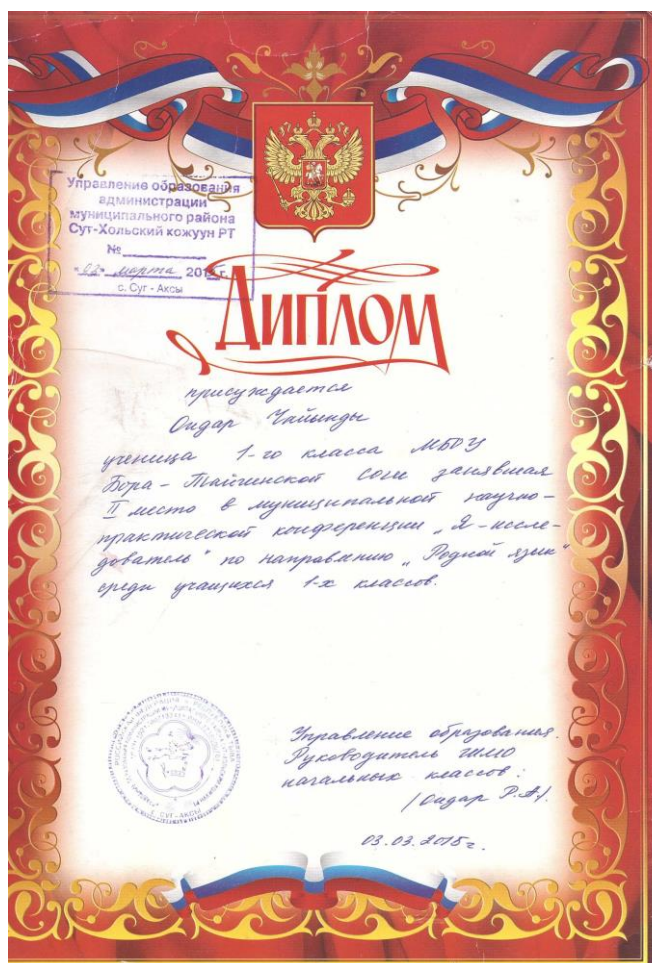 Управление образования
администрации
муниципального района
Сут-Хольский кожуун РТ
№
"02" марта 201 г.
с. Суг - Аксы
Диплом
присуждается
Ондар Чайынды
ученица 1-го класса МБОУ
Бора-Тайгинской сош занявшая
II место в муниципальной научно-
практической конференции „Я-иссле-
дователь" по направлению „Родной язык"
среди учащихся 1-х классов.
Управление образования.
Руководитель
начальных классов:
/Ондар Р.А/.
03.03.2015г.
С. СУГ-АКСЫ